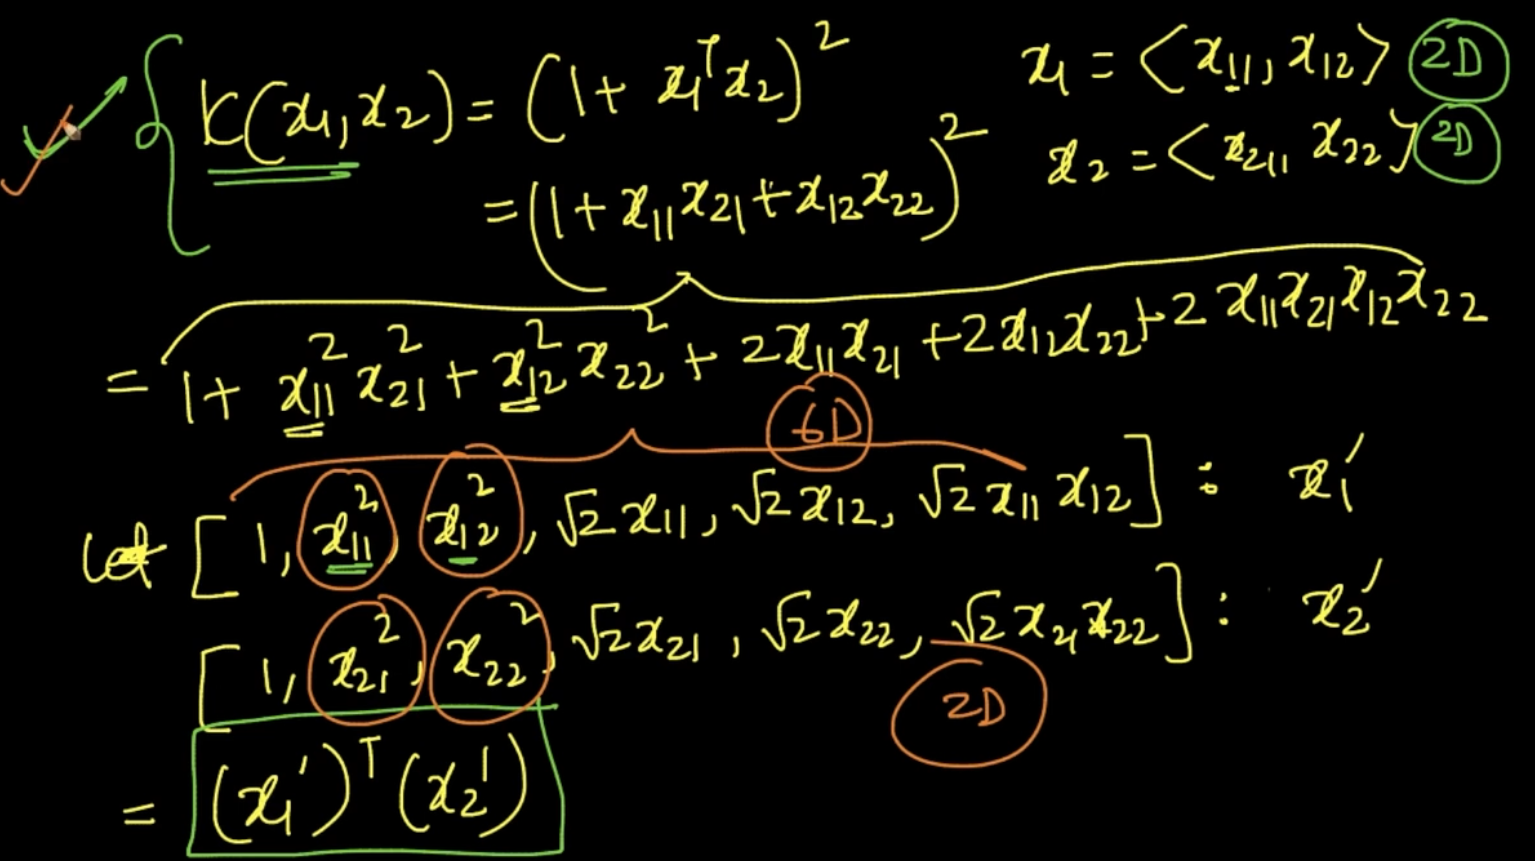 K(x₁,x₂) = (1 + x₁ᵀx₂)²
x₁ = <x₁₁, x₁₂> 2D
= (1 + x₁₁x₂₁ + x₁₂x₂₂)²
x₂ = <x₂₁, x₂₂> 2D
= 1 + x₁₁²x₂₁² + x₁₂²x₂₂² + 2x₁₁x₂₁ + 2x₁₂x₂₂ + 2x₁₁x₂₁x₁₂x₂₂
6D
let [1, x₁₁², x₁₂², √2x₁₁, √2x₁₂, √2x₁₁x₁₂] : x₁′
[1, x₂₁², x₂₂², √2x₂₁, √2x₂₂, √2x₂₁x₂₂] : x₂′
2D
= (x₁′)ᵀ(x₂′)